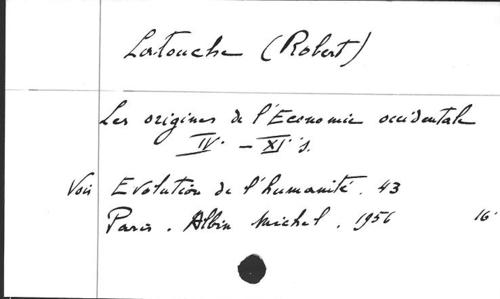 Latouche (Robert)
Les origines de l'Economie occidentale
IVe - XIe s.
Voir Evolution de l'humanité . 43
Paris . Albin Michel . 1956 16°